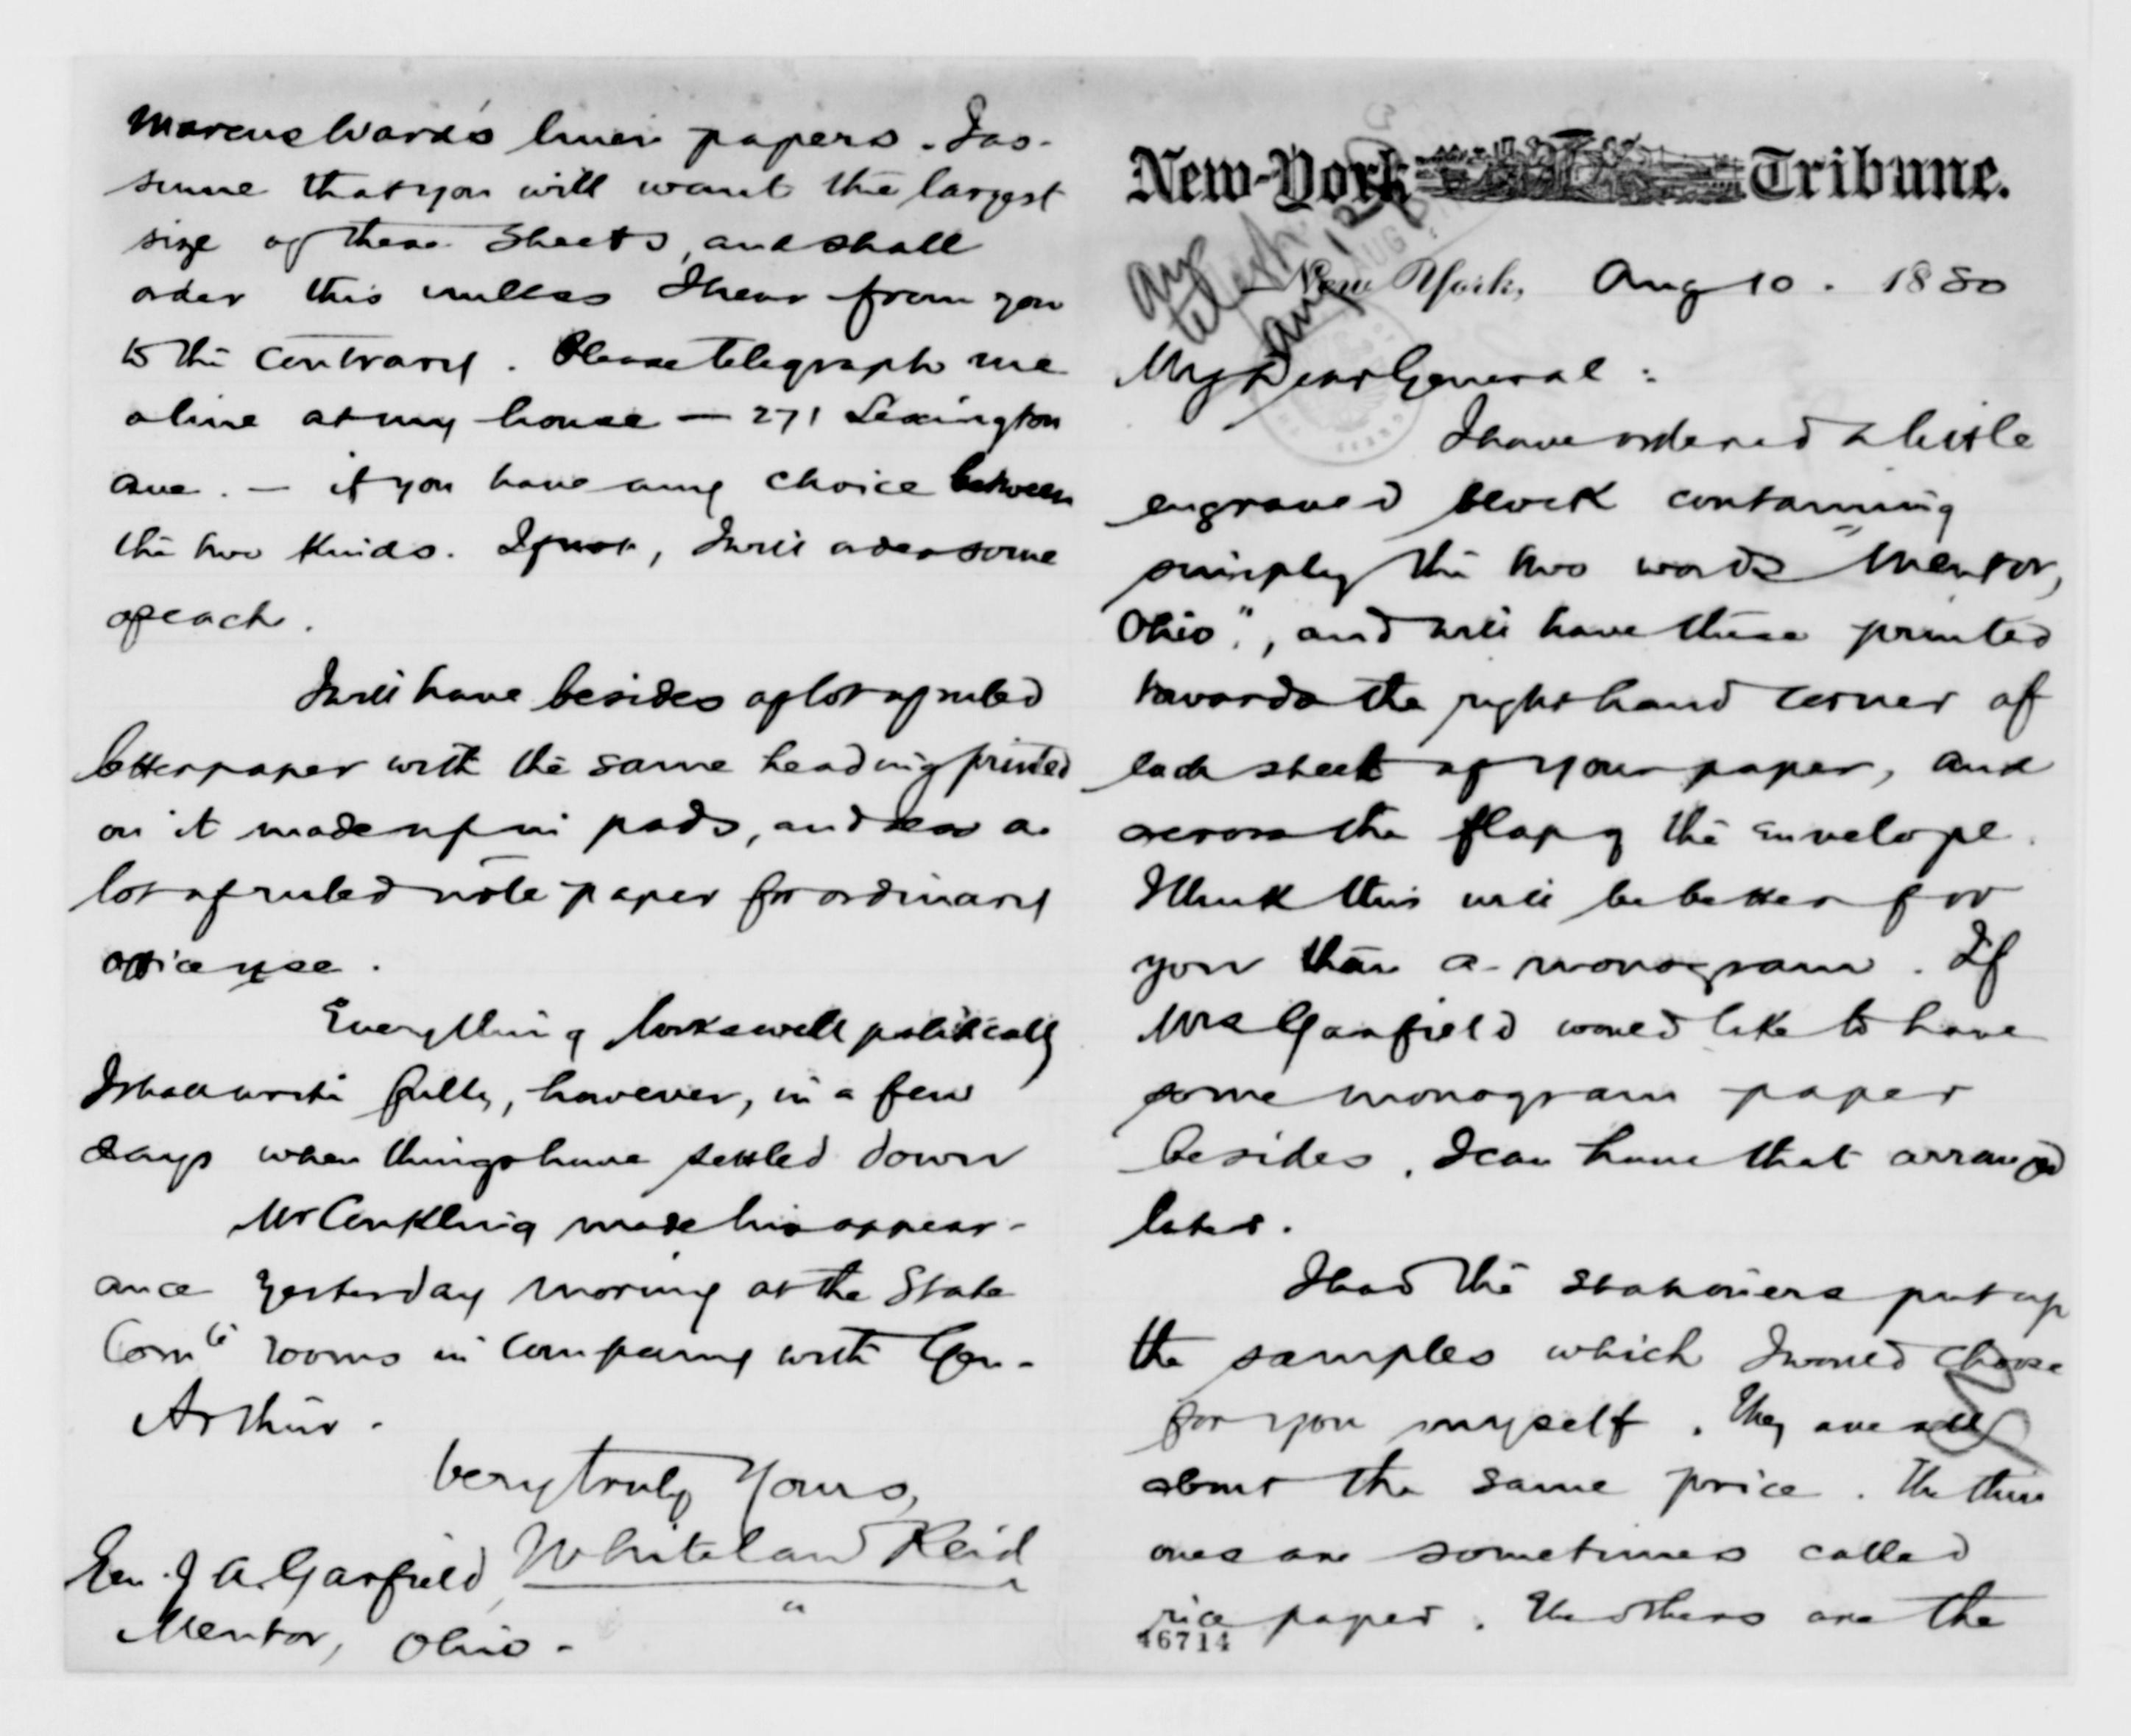 New-York Tribune.
New York, Aug 10. 1880
Ay
Telegh
Aug 12
My Dear General :
I have ordered a little
engraved block containing
simply the two words "Mentor,
Ohio.", and will have these printed
towards the right hand corner of
each sheet of your paper, and
across the flap of the envelope.
I think this will be better for
you than a monogram. If
Mrs Garfield would like to have
some monogram paper
besides, I can have that arranged
later.
I had the stationers put up
the samples which I would choose
for you myself. They are all
about the same price. The thin
ones are sometimes called
rice paper. The others are the
46714
Marcus Ward's linen papers. I as-
sume that you will want the largest
size of these sheets, and shall
order this unless I hear from you
to the contrary. Please telegraph me
a line at my house — 271 Lexington
Ave. — if you have any choice between
the two kinds. If not, I will order some
of each.
I will have besides a lot of ruled
letter paper with the same heading printed
on it made up in pads, and also a
lot of ruled note paper for ordinary
office use.
Everything looks well politically
I shall write fully, however, in a few
days when things have settled down
Mr Conkling made his appear-
ance yesterday morning at the State
Comte rooms in company with Gen.
Arthur.
Very truly Yours,
Whitelaw Reid
Gen. J A. Garfield,
Mentor, Ohio.